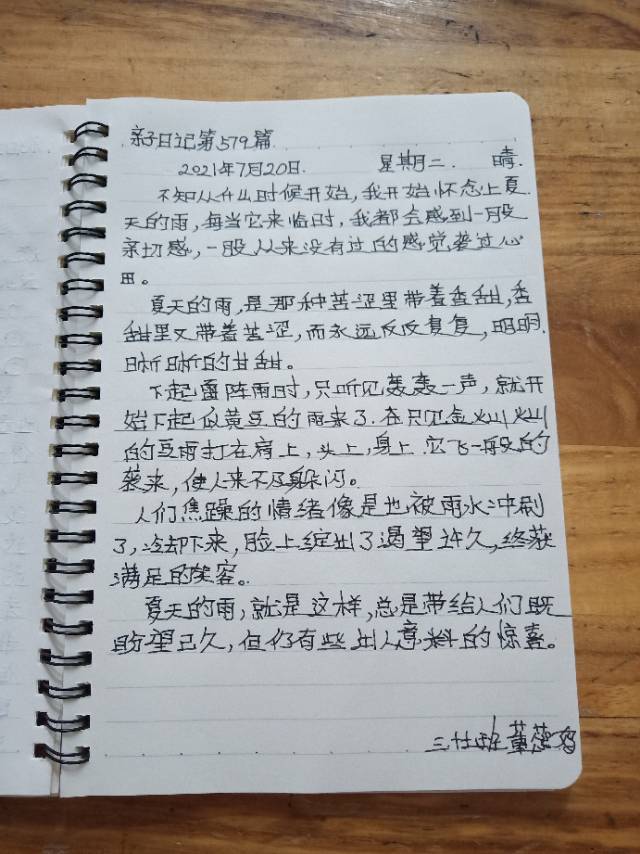 亲子日记第579篇
2021年7月20日. 星期二. 晴.
不知从什么时候开始,我开始怀念上夏
天的雨,每当它来临时,我都会感到一股
亲切感,一股从来没有过的感觉袭过心
田。
夏天的雨,是那种苦涩里带着香甜,香
甜里又带着苦涩,而永远反反复复,明明
晰晰的甘甜。
下起雷阵雨时,只听见轰轰一声,就开
始下起似黄豆的雨来了.在只见金灿灿
的豆雨打在肩上,头上,身上.它飞一般的
袭来,使人来不及躲闪。
人们焦躁的情绪像是也被雨水冲刷
了,冷却下来,脸上绽出了渴望许久,终获
满足的笑容。
夏天的雨,就是这样,总是带给人们既
盼望已久,但仍有些出人意料的惊喜。
班董